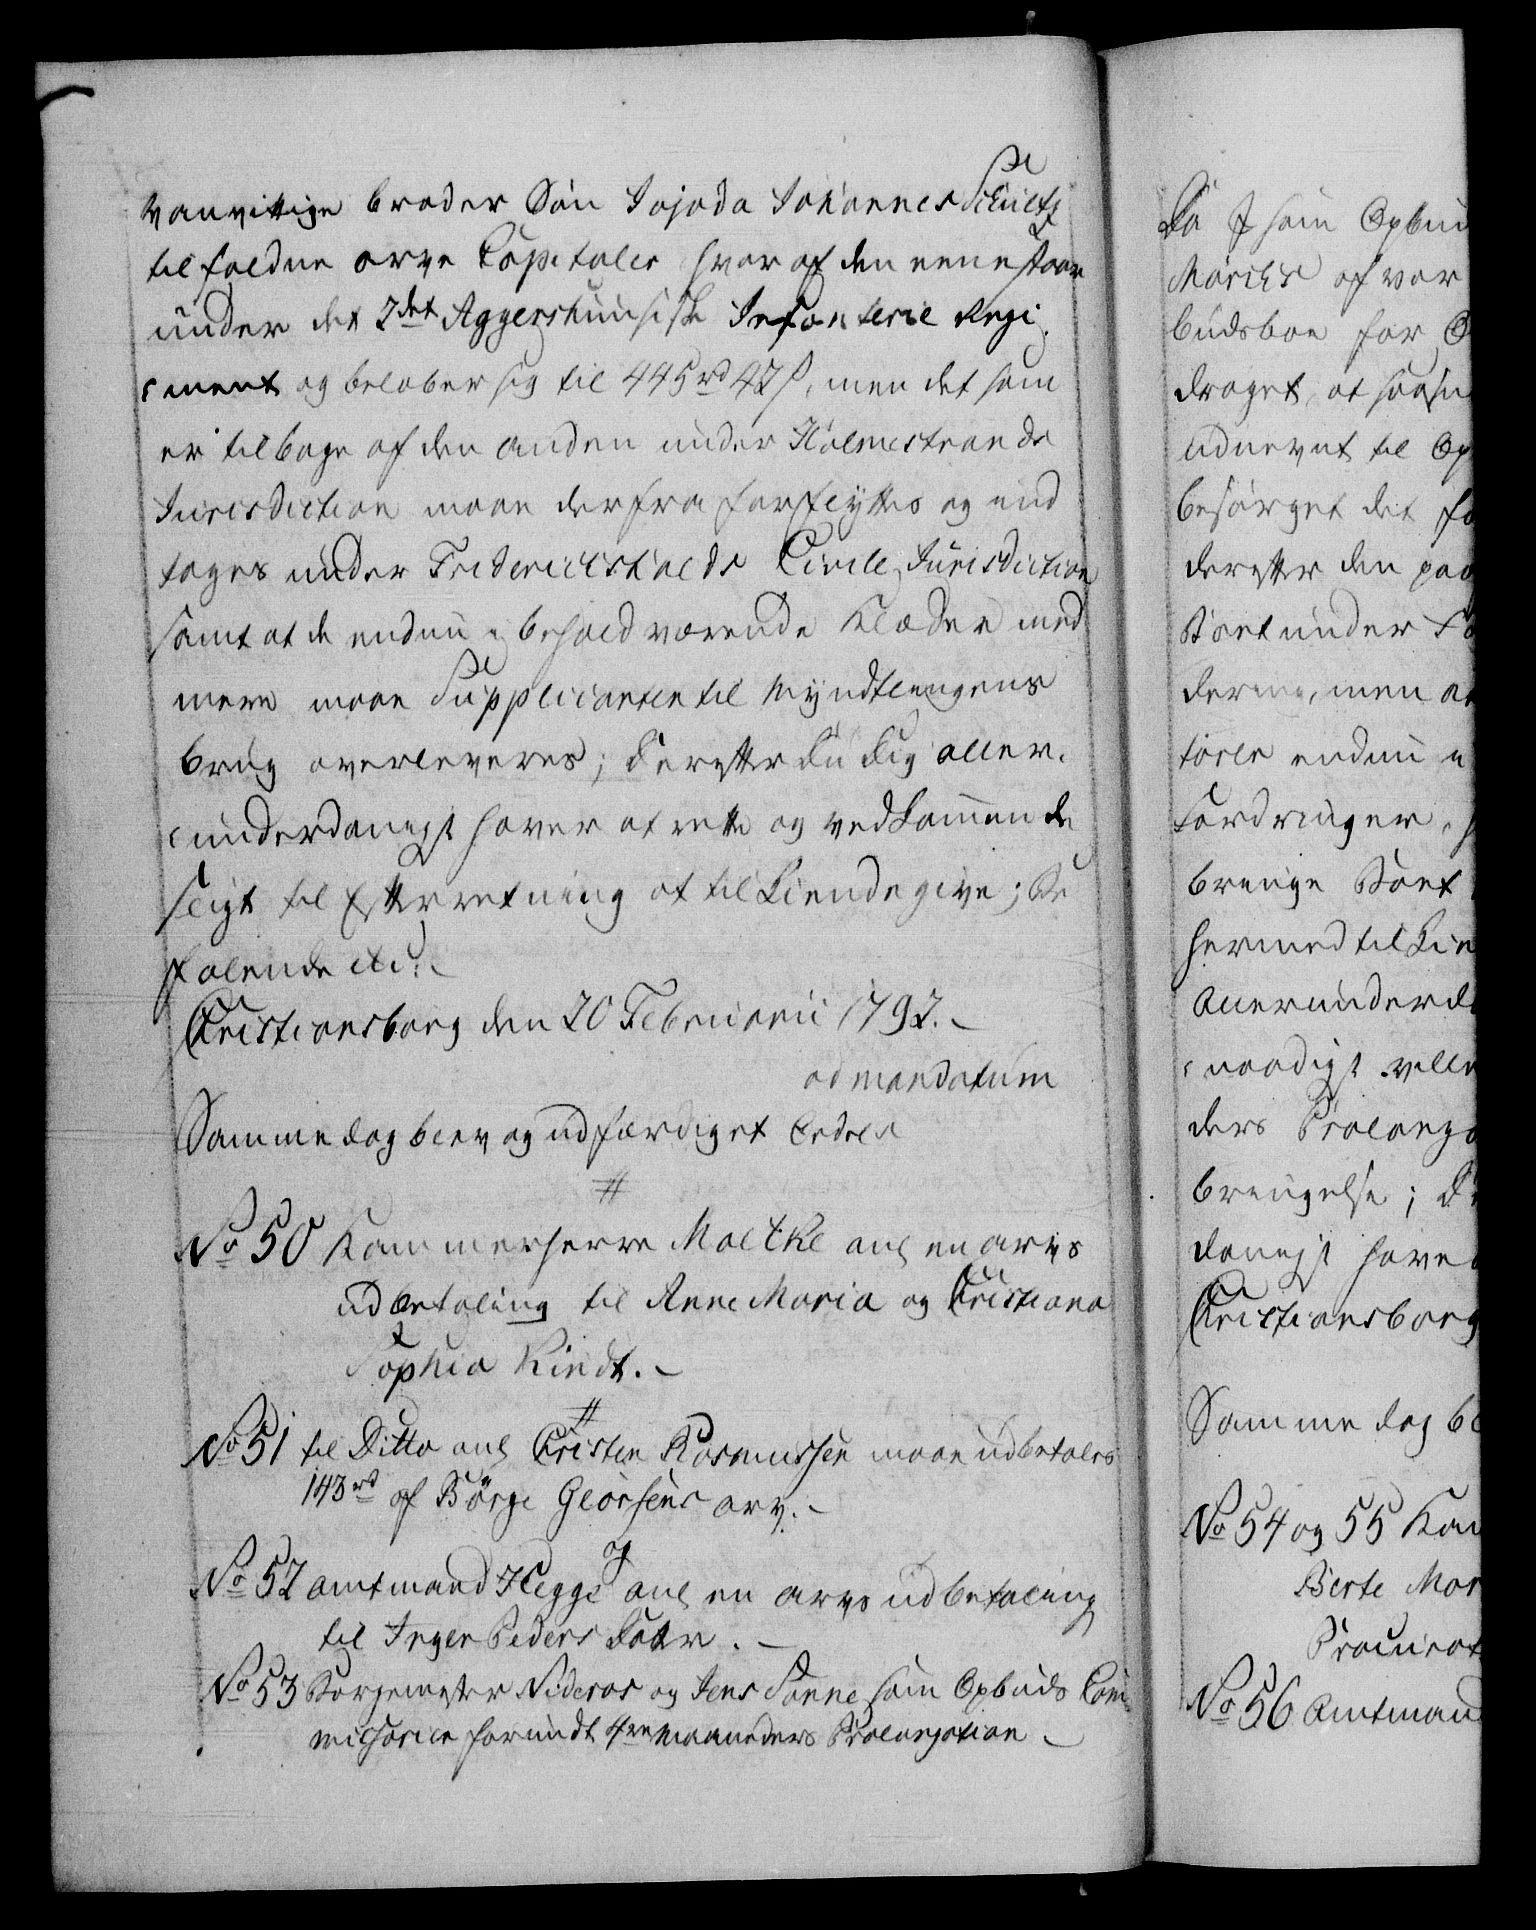 vanvittige broder Søn Jojada Johannes Schultz
tilfaldne arve Capitaler hvoraf den eene staar
under det 2det Aggershuusiske Infanterie Regi-
ment og beløber sig til 445 rd 42 s, men det som
er tilbage af den anden under Holmestrands
Jurisdiction maae derfra forflyttes og ind
tages under Friderichshalds Civile Jurisdiction
samt at de endnu i behold værende Klæder med
mere maae Supplicanten til Myndtlingens
brug overleveres; derefter du dig aller-
underdanigst haver at rette og vedkommende
sligt til Efterretning at tilkiendegive; Be
falende etc:
Christiansborg den 20 Februarii 1792.
ad mandatum
Samme dag blev og udfærdiget
No 50 Kammerherre Moltke anl en arvs
udbetaling til Anne Maria og Christiana
Sophia Kindt.
No 51 til Ditto anl Christen Rasmussen maae udbetales
143 rd af Börge Geörsens arv.
No 52 amtmand Hegge anl en arvs udbetaling
til Inger Peders Datter.
No 53 Borgemester Nideros og Jens Sonne som Opbuds Com
missarier forundt 4re Maaneders Prolongation
Da I som Opbud
af vor
budsboe for
draget, at
udnevnt til Op
besørget det
derefter den
Boet under
men
endnu
Fordringer,
bringe Boet
hermed tilkie
Allerunderda
naadigst ville
ders Prolonga
bringelse; De
danigst have
Christiansborg
Samme dag bl
No 54 og 55 Kam
Berte Mar
Procurat
No 56 Amtmand